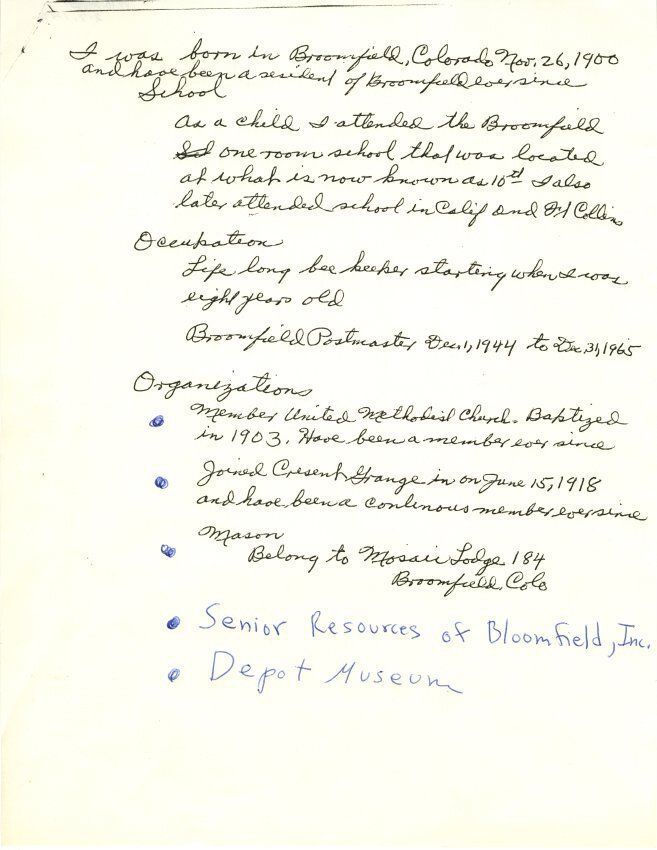 I was born in Broomfield, Colorado Nov. 26, 1900
and have been a resident of Broomfield ever since
School
As a child I attended the Broomfield
one room school that was located
at what is now known as 10th I also
later attended school in Calif and Ft Collins
Occupation
Life long bee keeper starting when I was
eight years old
Broomfield Postmaster Dec. 1, 1944 to Dec 31, 1965
Organizations
Member United Methodist Church. Baptized
in 1903. Have been a member ever since
Joined Cresent Grange in on June 15, 1918
and have been a continous member ever since
Mason
Belong to Mosaic Lodge 184
Broomfield, Colo
Senior Resources of Bloomfield, Inc.
Depot Museum